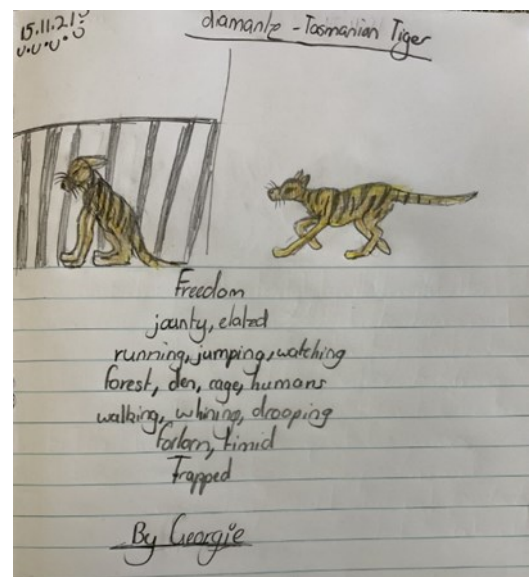 15.11.21
diamante - Tasmanian Tiger
Freedom
jaunty, elated
running, jumping, watching
forest, den, cage, humans
walking, whining, drooping
forlorn, timid
Trapped
By Georgie